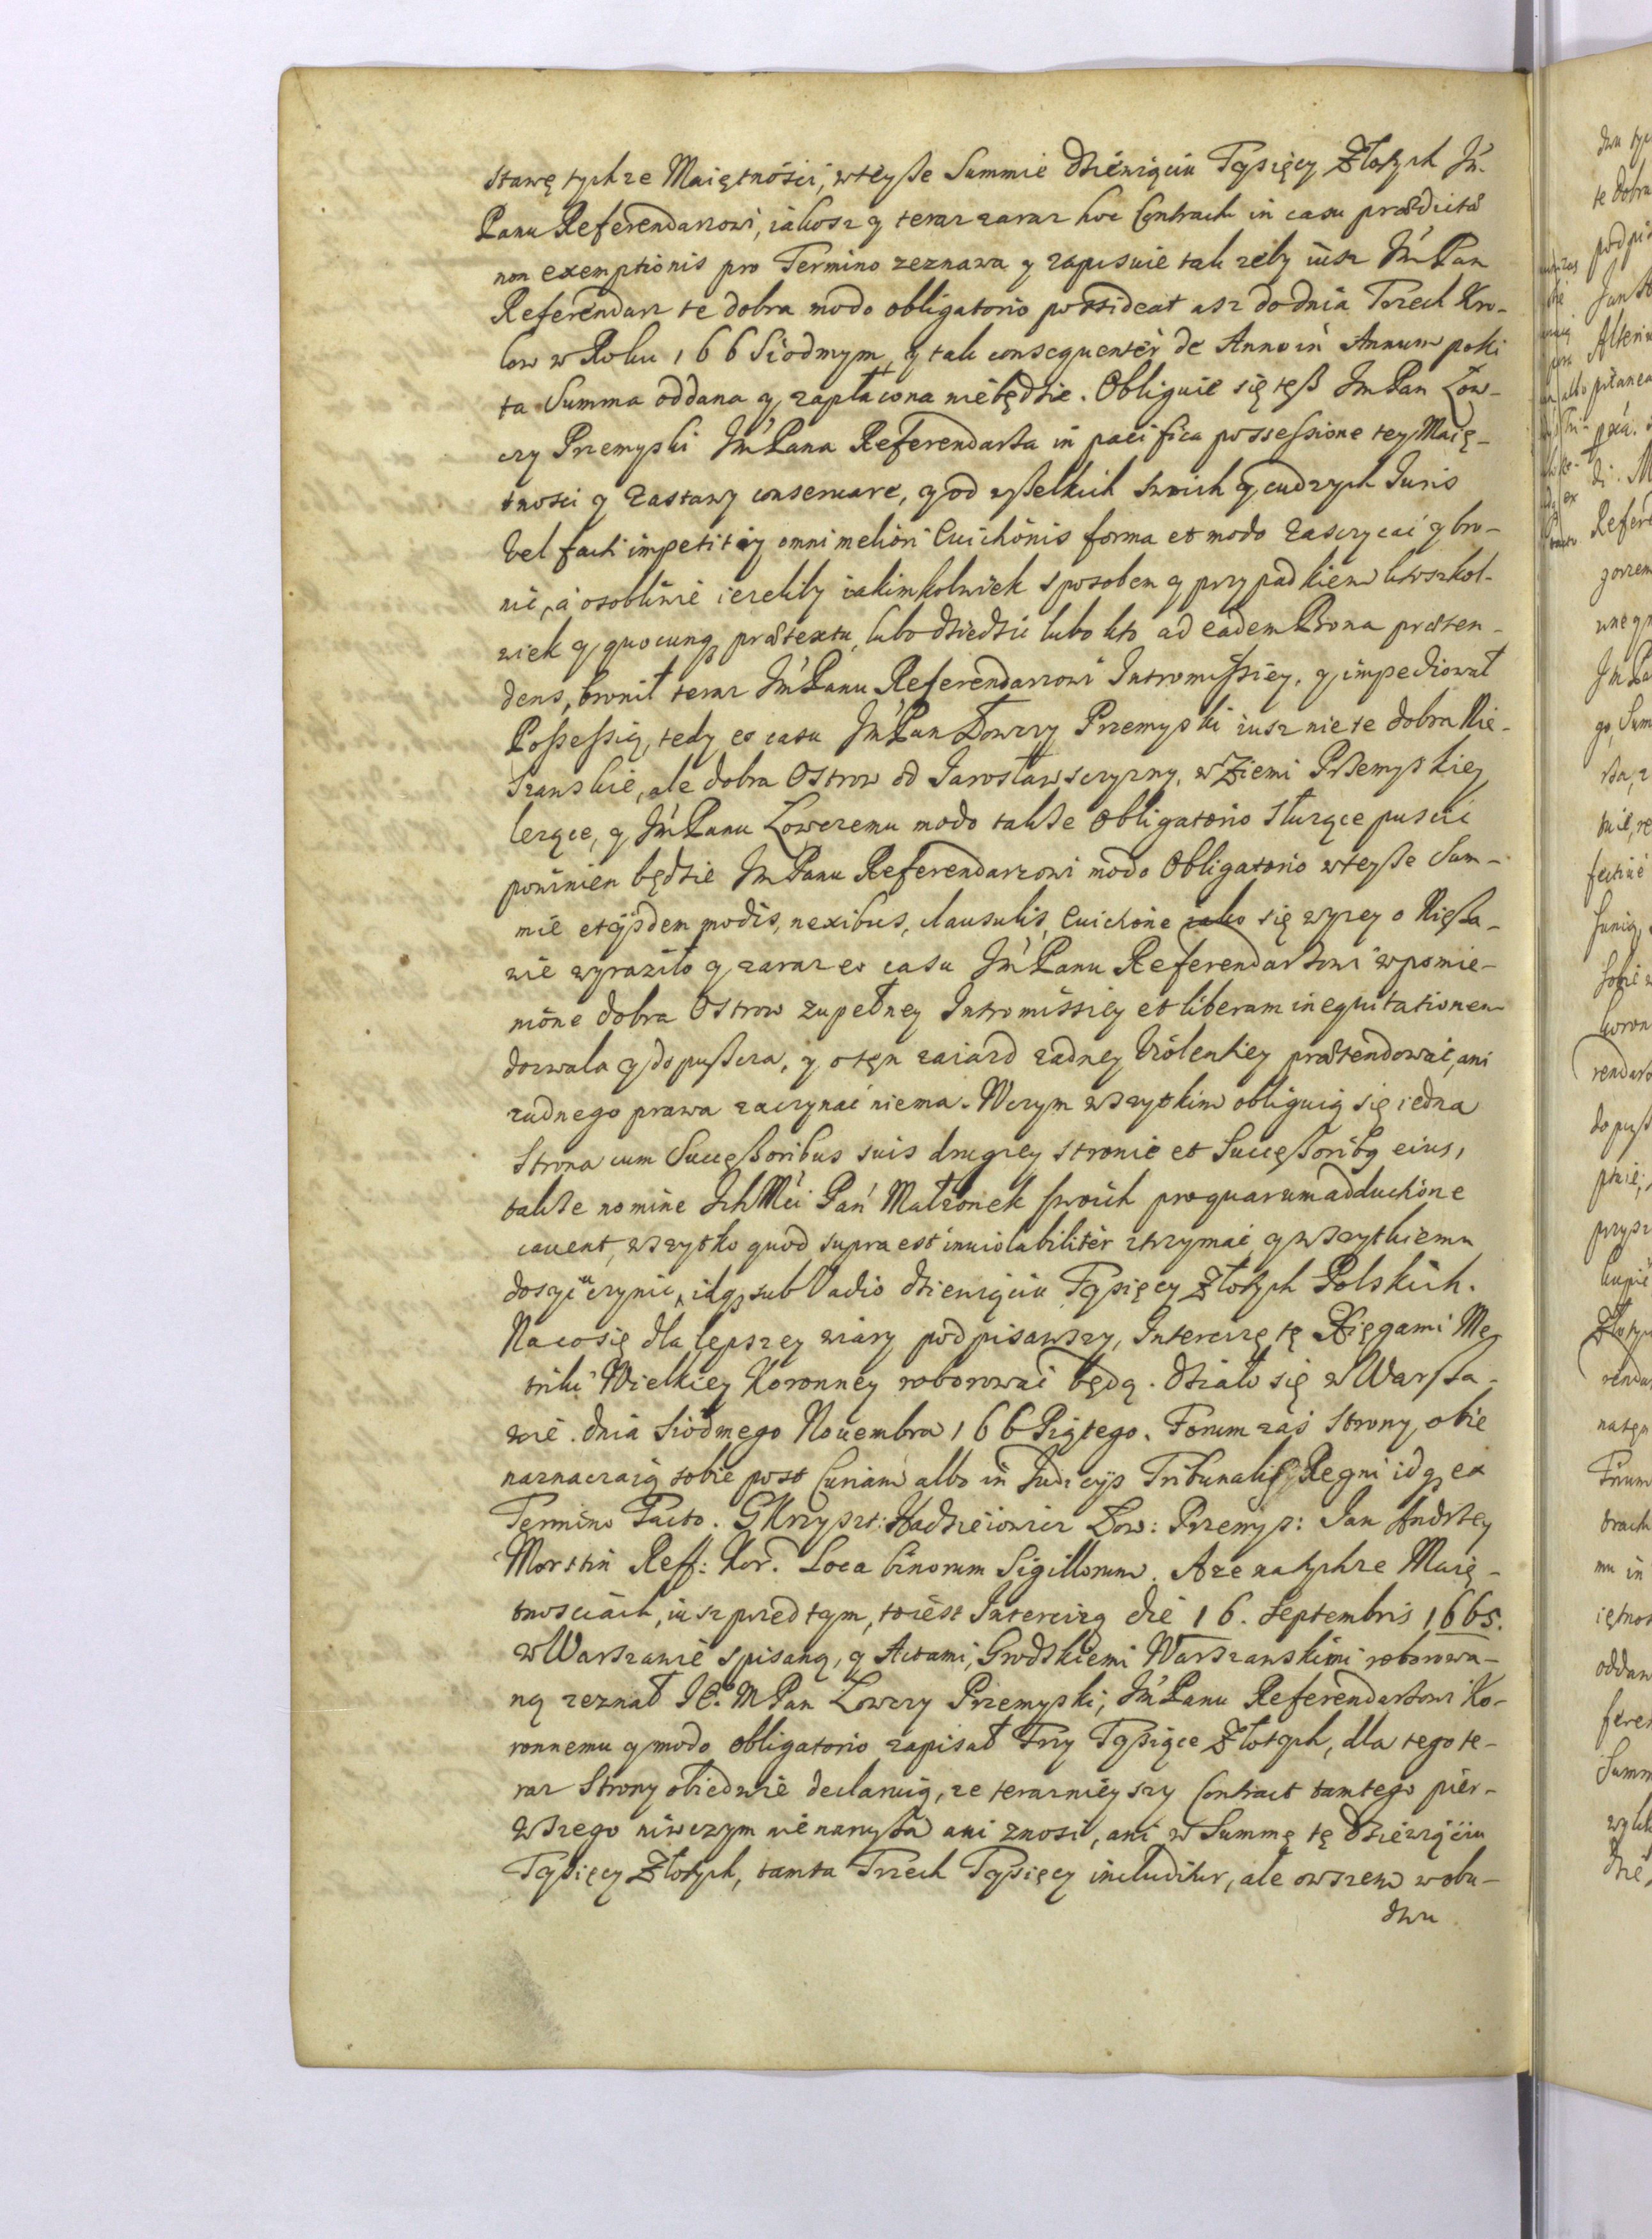 stawę tychze Maiętnósci, wteyße Summie dźiewięciu Tysięcy Złotych Jm̃.
Panu Referendarzowi, iakosz y teraz zaraz hoc Contractu in casu prædictæ
non exemptionis pro Termino zeznawa y zapisuie tak zeby iusz Jm̃ Pan
Referendarz te dobra modo obligatorio possideat asz do dnia Trzech Kro-
low w Roku 166 Siodmym, y tak consequentèr de Anno in Annum poki
ta Summa oddana y zapłacona niebędźie. Obliguie się teß Jm Pan Łow-
czy Przemyski Jm̃ Pana Referendarßa in pacifica possessione tey Maię-
tnosci y Zastawy conseruare, y od wßelkich swoich y cudzych Iuris
Vel facti impetitiy omni meliori Euictionis forma et modo zasczycać y bro-
nić, á osobliwie iezeliby iakimkolwiek sposobem y przypadkiem ktoszkol-
wiek y quocunq; prætextu, lubo dźiedźic lubo kto ad eadem Bona præten-
dens, bronił teraz Jm̃ Panu Referendarzowi Intromissiey, y impediował
Poßeßią, tedy eo casu Jm̃ Pan Łowczy Przemyski iusz nie te dobra Nie-
szawskie, ale dobra Ostrow od Jarosławsczyzny, w Ziemi Prßemyskiey
lezące, y Jm̃ Panu Łowczemu modo takße obligatorio służące puscić
powinien będźie Jm Panu Referendarzowi modo Obligatorio wteyße Sum-
mie et ijsdem modis, nexibus, clausulis, Euictione iako się wyzey o Nießa-
wie wyraziło y zaraz eo casu Jm̃ Panu Referendarßowi wpomie-
nione dobra Ostrow zupełney Intromissiey et liberam inequitationem
dozwala y dopußcza, y o ten zaiazd zadney Violentiey prætendować, ani
zadnego prawa zaczynać niema. Wczym wszytkim obliguią się iedna
Strona cum Successoribus suis drugiey stronie et Successoribq eius,
takße nomine Ich Mći Pań Małzonek swoich pro quarum adductione
cauent, wszytko quod supra est inuiolabilitèr ztrzymać y wszytkiemu
dosyć uczynić, idq; sub Vadio dźiewięciu Tysięcy Złotych Polskich.
Na co się dla lepszey wiary podpisawszy, Intercizę tę Xięgami Me
triki Wielkiey Koronney roborować będą. Dźiało się w Warßa-
wie dnia Siodmego Nouembra 166 Piątego. Forum zaś strony obie
naznaczaią sobie post Curiam albo in Judicijs Tribunalis Regni idq; ex
Termino Tacto. GKrzyszt: Hadźieiowicz Łow: Przemys: Jan Andrzey
Morstin Reff: Kor. Loca binorum Sigillorum. A ze na tychze Maię-
tnosciach, iusz przed tym, to iest Intercizą die 16. Septembris 1665.
w Warszawie spisaną, y Actami, Grodskiemi Warszawskimi roborowa-
ną zeznał Je̊. M Pan Łowczy Przemyski, Jm̃ Panu Referendarßowi Ko-
ronnemu y modo obligatorio zapisał Trzy Tysiące Złotych, dla tego te-
raz Strony obiedwie declaruią, ze terazniéyszy Contract tamtego pier-
wszego niwczym nie narußa ani znosi, ani w Summę tę dźiewięciu
Tysięcy Złotych, tamta Trzech Tysięcy includitur, ale owszem wobu-
dwu